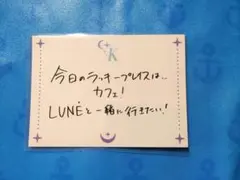 K
今日のラッキープレイスは、
カフェ!
LUNÉと一緒に行きたい!